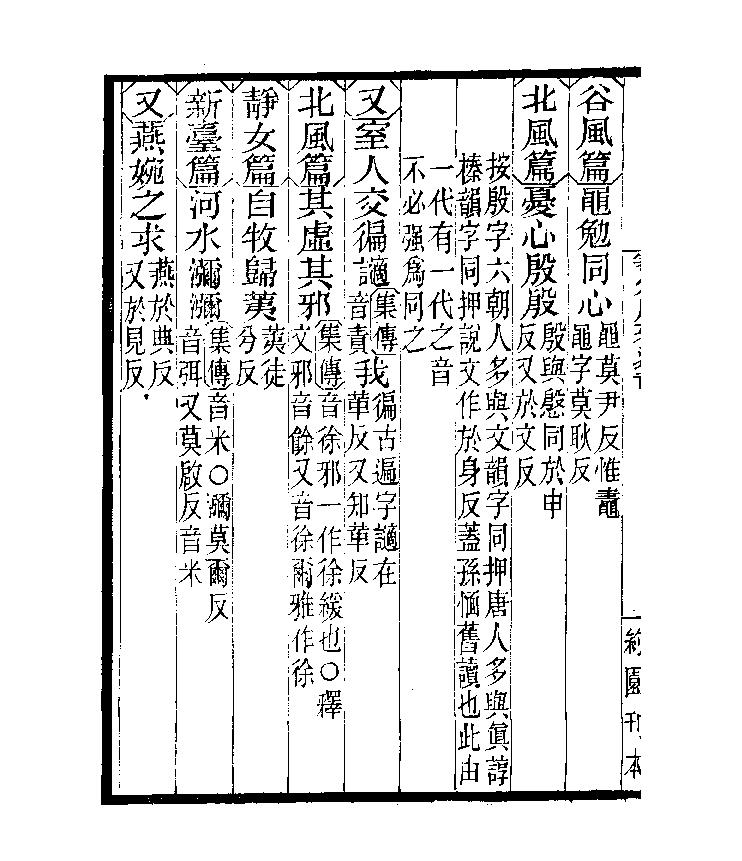 約園刊本
谷風篇黽勉同心
黽莫尹反惟鼃
黽字莫耿反
北風篇憂心殷殷
殷與慇同於申
反又於文反
按殷字六朝人多與文韻字同押唐人多與眞諄
榛韻字同押說文作於身反蓋孫愐舊讀也此由
一代有一代之音
不必强為同之
又室人交徧讁
集傳
音責
我
徧古遍字讁在
革反又知革反
北風篇其虛其邪
集傳音徐邪一作徐緩也○釋
文邪音餘又音徐爾雅作徐
靜女篇自牧歸荑
荑徒
兮反
新臺篇河水瀰瀰
集傳音米○瀰莫爾反
音弭又莫啟反音米
又燕婉之求
燕於典反
又於見反